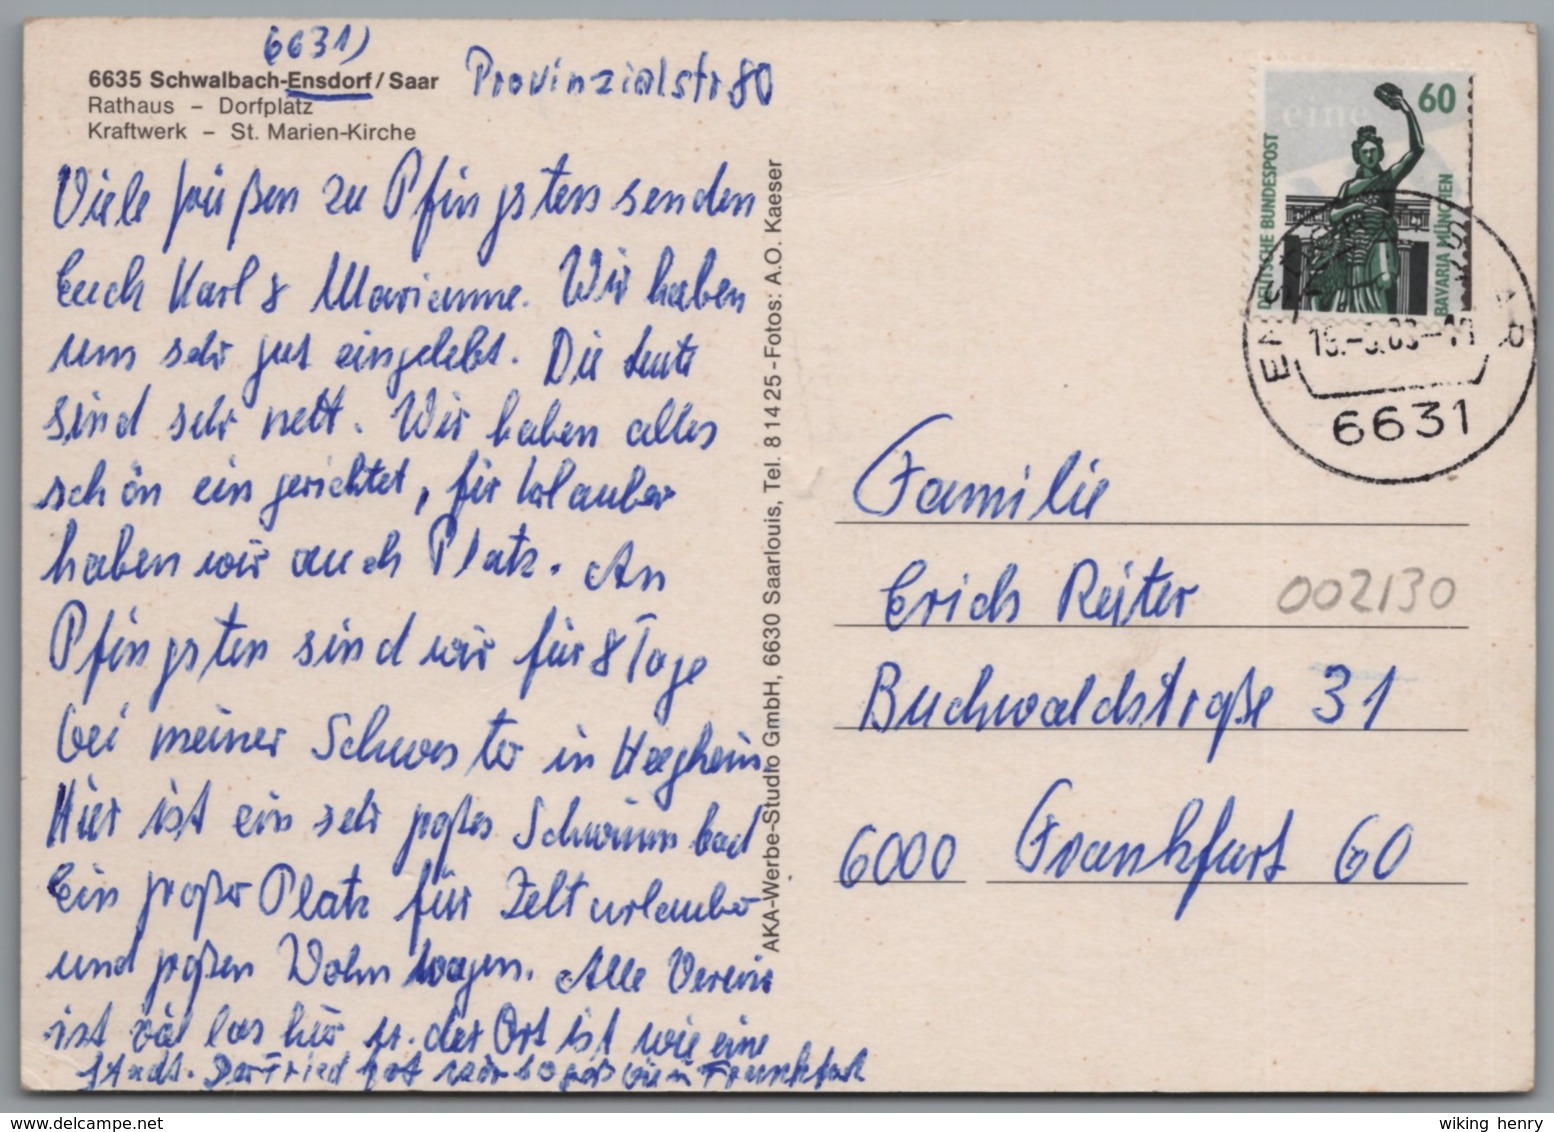 6631)
6635 Schwalbach-Ensdorf/Saar
Provinzialstr 80
Rathaus – Dorfplatz
Kraftwerk – St. Marien-Kirche
Viele Grüßen zu Pfingsten senden
Euch Karl & Marianne. Wir haben
uns sehr gut eingelebt. Die Leute
sind sehr nett. Wir haben alles
schön eingerichtet, für Urlauber
haben wir auch Platz. An
Pfingsten sind wir für 8 Tage
bei meiner Schwester in
Hier ist ein sehr großes Schwimmbad
Ein großer Platz für Zelturlauber
und großen Wohnwagen. Alle Verein
ist viel los hier u. der Ort ist wie eine
Stadt. Der Fried hat wie in Frankfurt
AKA-Werbe-Studio GmbH, 6630 Saarlouis, Tel. 81425 - Fotos: A.O. Kaeser
60
eine
DEUTSCHE BUNDESPOST
BAVARIA MÜNCHEN
6631
Familie
Erich Reiter
002130
Buchwaldstraße 31
6000 Frankfurt 60
wiking henry